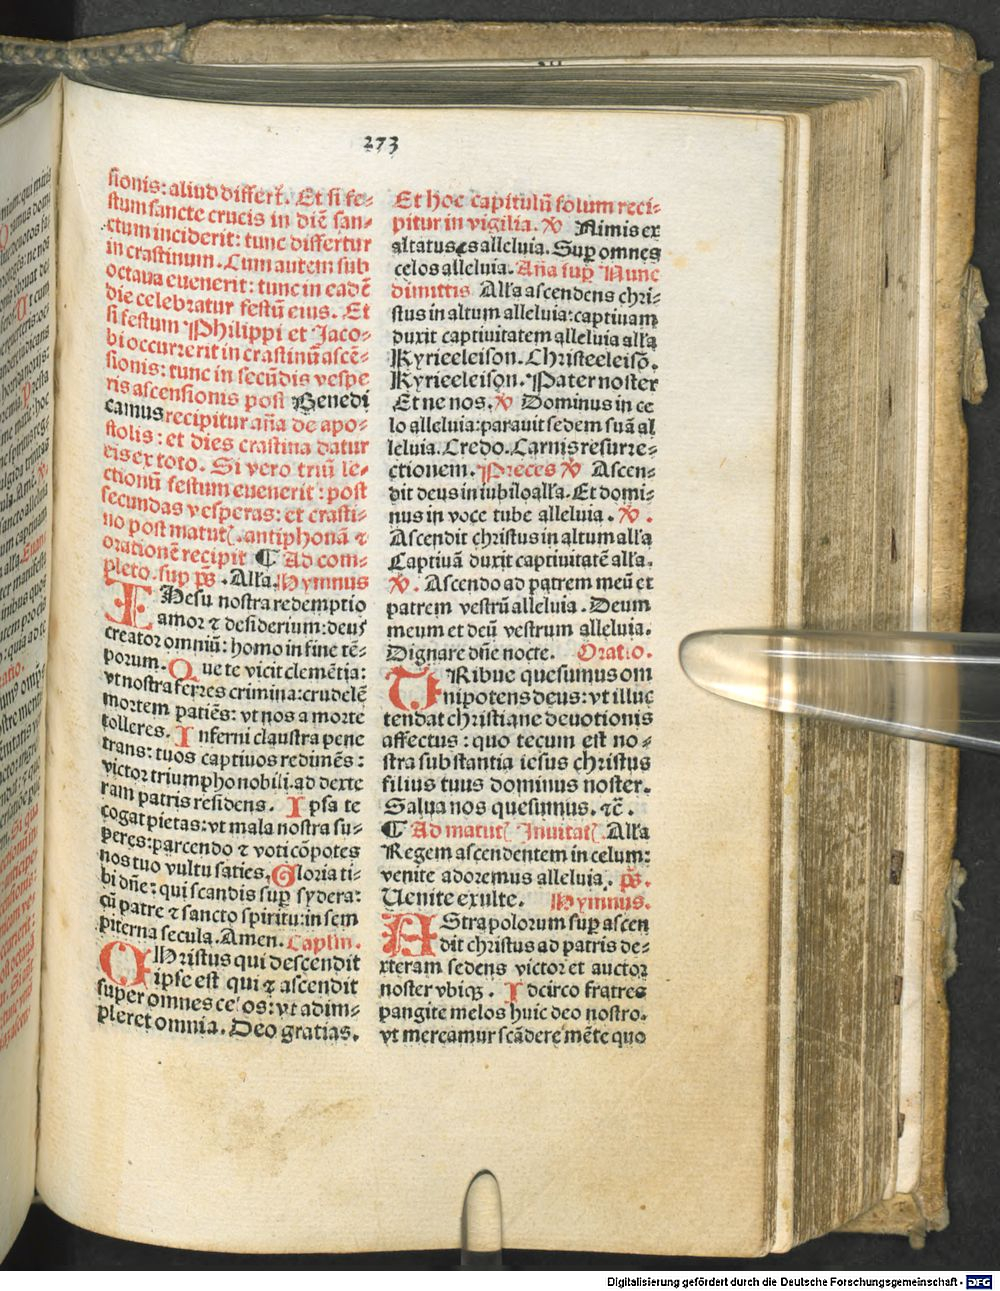 273
sionis: aliud differt. Et si fe⸗
stum sancte crucis in diē san⸗
ctum inciderit: tunc differtur
in crastinum. Cum autem sub
octaua euenerit: tunc in eadē
die celebratur festū eius. Et
si festum Philippi et Jaco⸗
bi occurrerit in crastinū ascē⸗
sionis: tunc in secūdis vespe
ris ascensionis post Benedi
camus recipitur aña de apo⸗
stolis: et dies crastina datur
eis ex toto. Si vero triū le⸗
ctionū festum euenerit: post
secundas vesperas: et crasti⸗
no post matut. antiphonā ⁊
orationē recipit ¶ Ad com⸗
pleto. sup ps. Alla. Hymnus
IHesu nostra redemptio
amor ⁊ desiderium: deus
creator omniū: homo in fine tē⸗
porum. Que te vicit clemētia:
vt nostra ferres crimina: crudelē
mortem patiēs: vt nos a morte
tolleres. Inferni claustra pene
trans: tuos captiuos redimēs:
victor triumpho nobili. ad dexte
ram patris residens. Ipsa te
cogat pietas: vt mala nostra su⸗
peres: parcendo ⁊ voti cōpotes
nos tuo vultu saties. Gloria ti⸗
bi dñe: qui scandis sup sydera:
cū patre ⁊ sancto spiritu: in sem
piterna secula. Amen. Caplm.
CHristus qui descendit
ipse est qui ⁊ ascendit
super omnes celos: vt adim⸗
pleret omnia. Deo gratias.
Et hoc capitulū solum reci⸗
pitur in vigilia. ℣ Nimis ex
altatus es alleluia. Sup omnes
celos alleluia. Aña sup Nunc
dimittis Alla ascendens chri⸗
stus in altum alleluia: captiuam
duxit captiuitatem alleluia alla
Kyrieeleison. Christeeleisō.
Kyrieeleison. Pater noster
Et ne nos. ℣ Dominus in ce
lo alleluia: parauit sedem suā al
leluia. Credo. Carnis resurre⸗
ctionem. Preces ℣ Ascen⸗
dit deus in iubilo alla. Et domi⸗
nus in voce tube alleluia. ℣.
Ascendit christus in altum alla
Captiuā duxit captiuitatē alla.
℣. Ascendo ad patrem meū et
patrem vestrū alleluia. Deum
meum et deū vestrum alleluia.
Dignare dñe nocte. Oratio.
TRibue quesumus om
nipotens deus: vt illuc
tendat christiane deuotionis
affectus: quo tecum est no⸗
stra substantia iesus christus
filius tuus dominus noster.
Salua nos quesumus. ⁊c̄.
¶ Ad matut Inuitat. Alla
Regem ascendentem in celum:
venite adoremus alleluia. ps.
Uenite exulte. Hymnus.
AStra polorum sup ascen
dit christus ad patris de⸗
xteram sedens victor et auctor
noster vbiqȝ. Idcirco fratres
pangite melos huic deo nostro.
vt mereamur scādere mēte quo
Digitalisierung gefördert durch die Deutsche Forschungsgemeinschaft - DFG